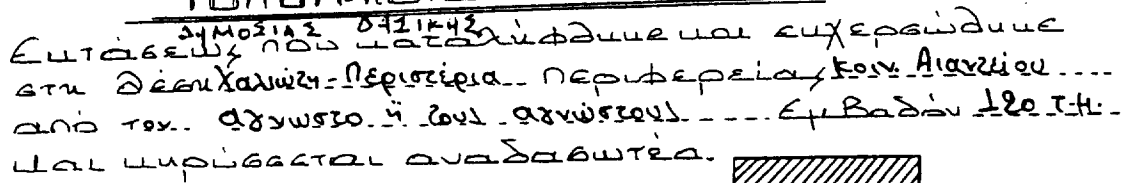 ΔΥΜΟΣΙΑΣ ΔΑΣΙΚΗΣ
Εκτάσεως που καταλήφθηκε και εκχερσώθηκε
στη θέση Χαλιώτη - Περιστέρια περιφερείας Κοιν. Αιαντείου
από τον άγνωστο ή τους αγνώστους Εμβαδόν 120 τ.μ.
και κηρύσσεται αναδασωτέα.